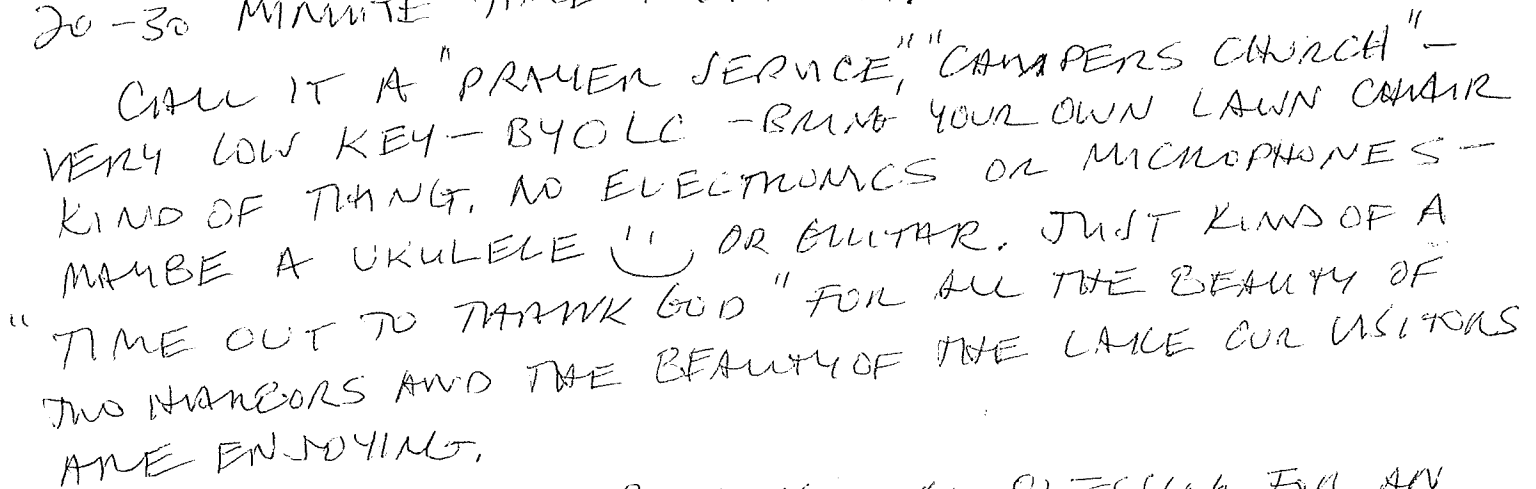 20-30 MINUTE
CALL IT A "PRAYER SERVICE," "CAMPERS CHURCH" —
VERY LOW KEY — BYOLC — BRING YOUR OWN LAWN CHAIR
KIND OF THING. NO ELECTRONICS OR MICROPHONES —
MAYBE A UKULELE :) OR GUITAR. JUST KIND OF A
"TIME OUT TO THANK GOD" FOR ALL THE BEAUTY OF
TWO HARBORS AND THE BEAUTY OF THE LAKE OUR VISITORS
ARE ENJOYING.
FOR AN